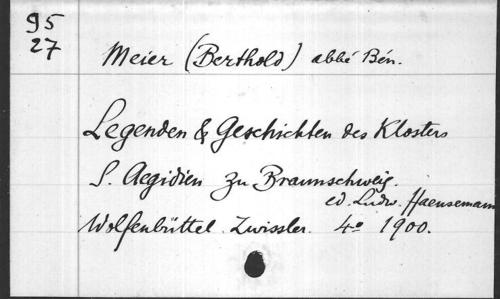 95
27
Meier (Berthold) abbé Bén.
Legenden & Geschichten des Klosters
S. Aegidien zu Braunschweig.
ed. Ludw. Haensemann
Wolfenbüttel. Zwissler. 4° 1900.